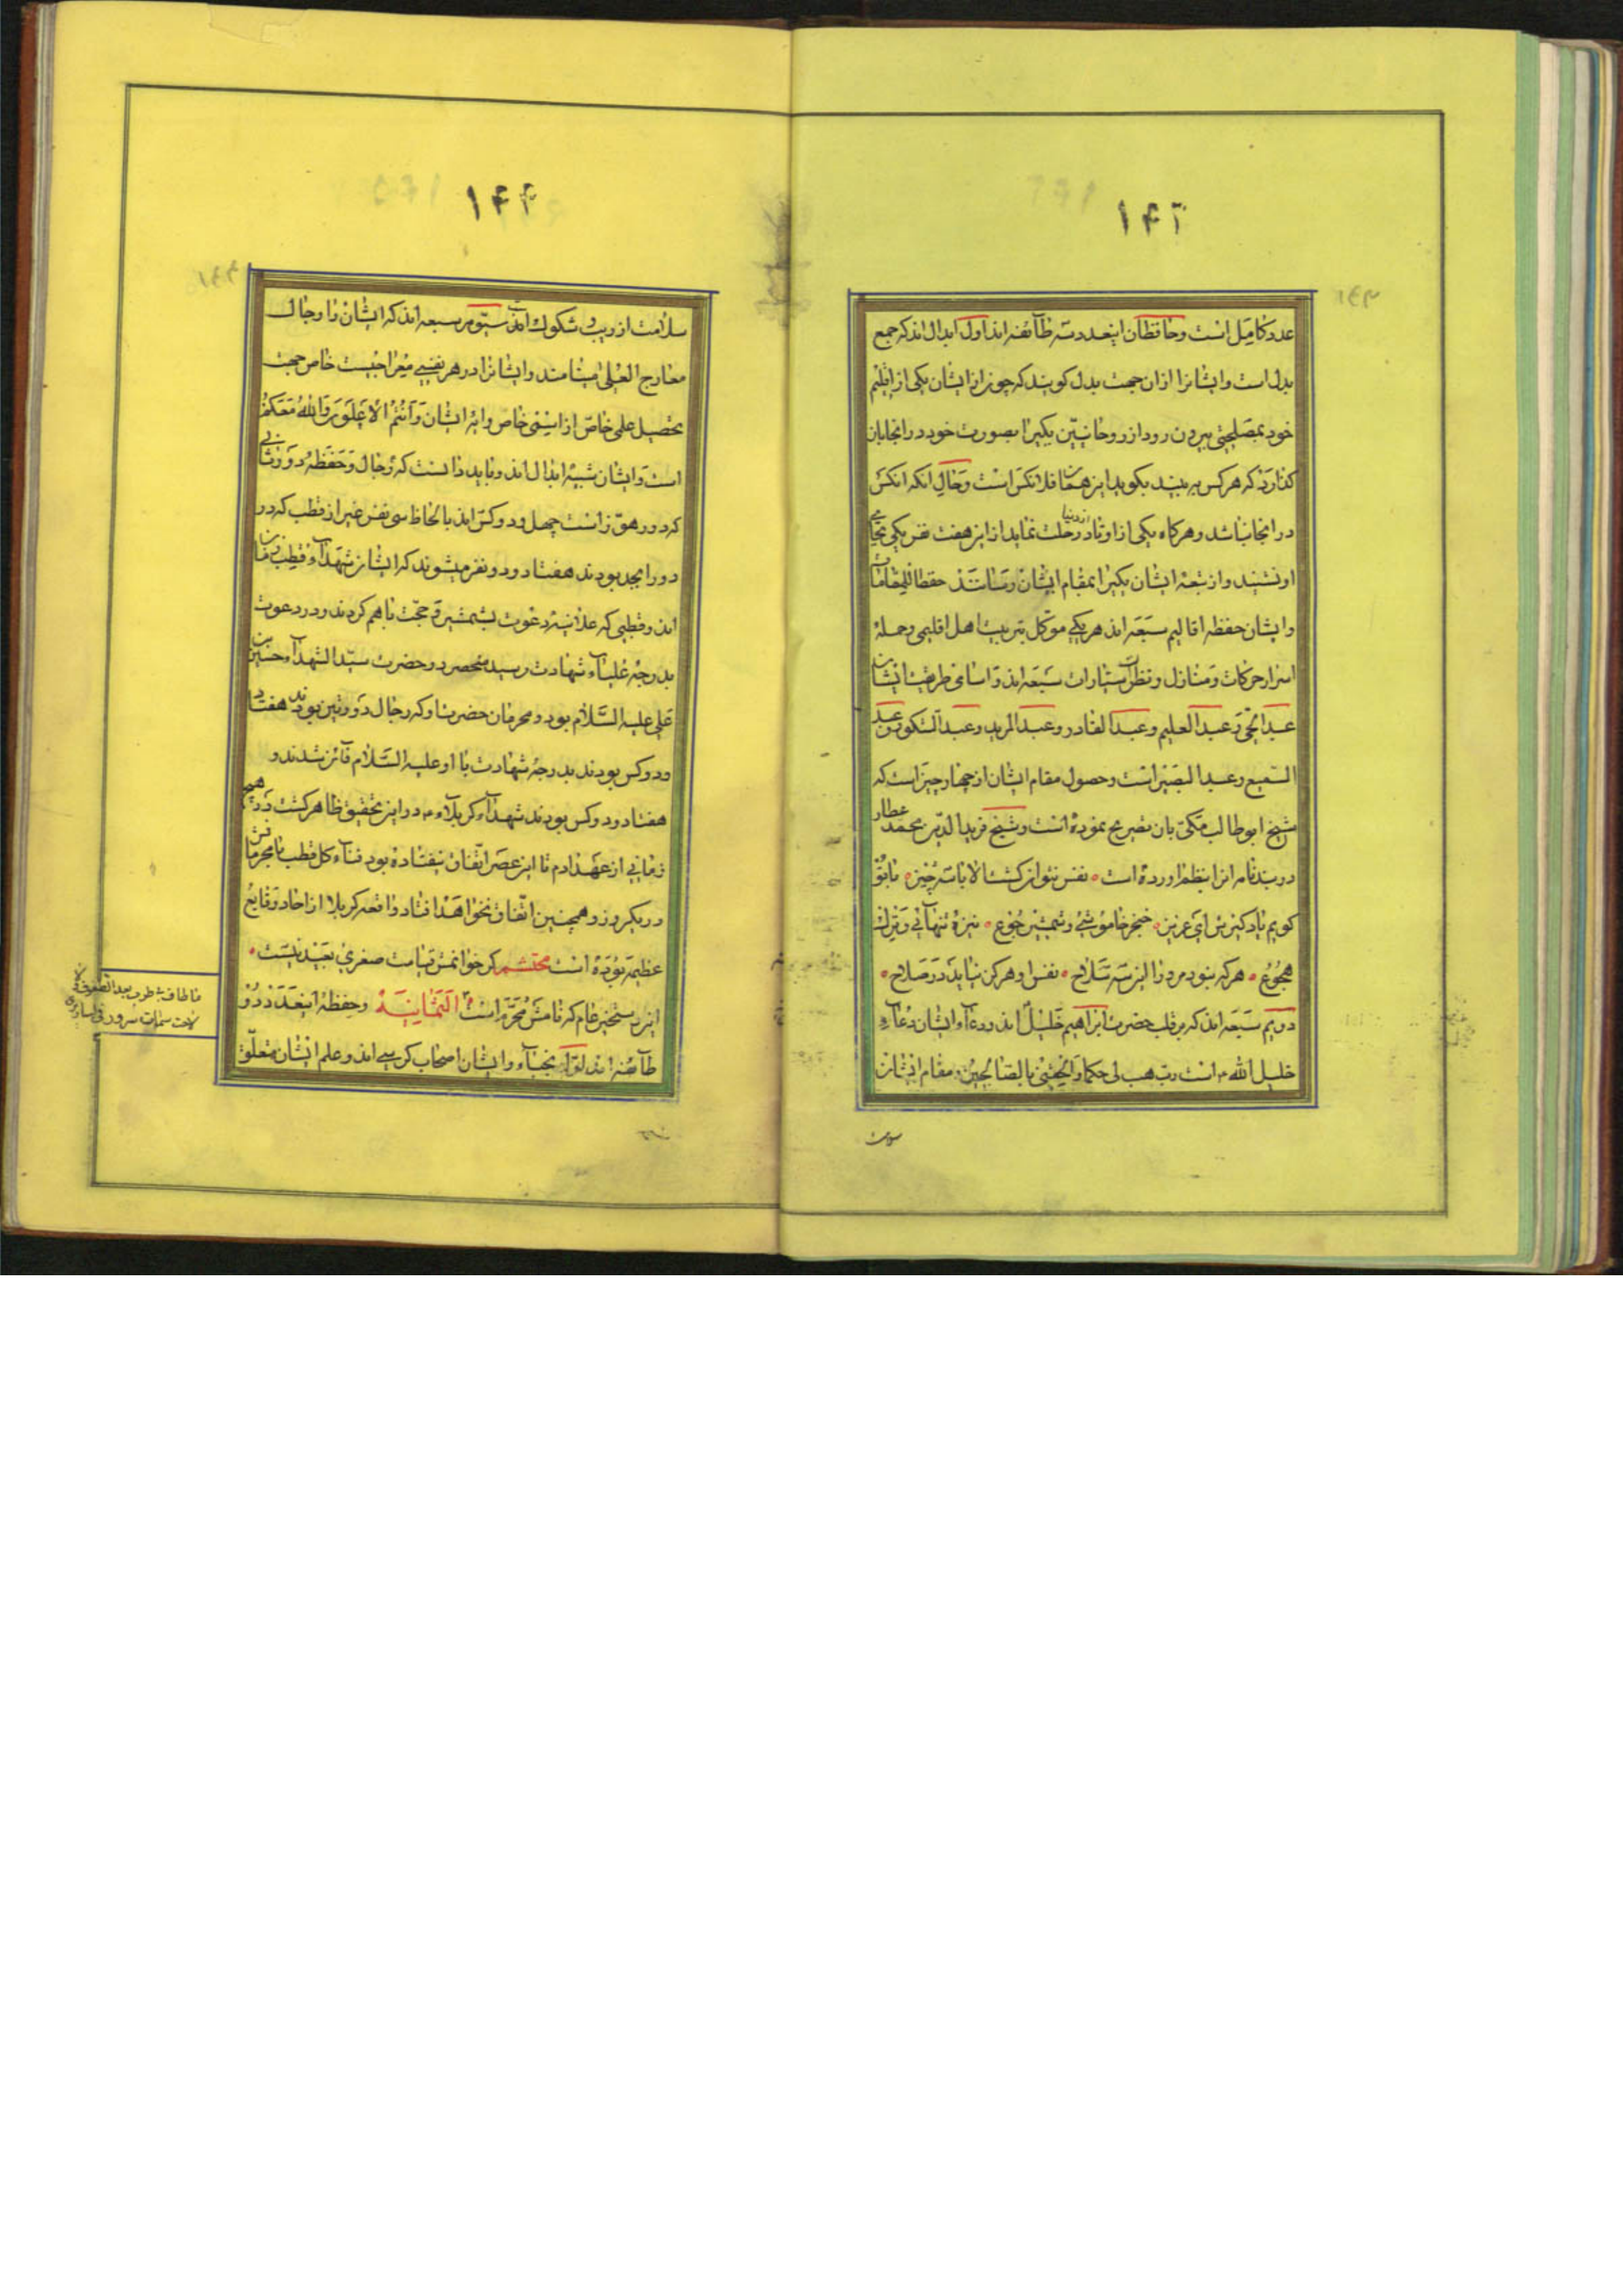 ۱۴۳
عدد کامل است و حافظان اینعدد سه طآئفه اند اول ابدال اند که جمع
بدل است و ایشانرا ازان جهت بدل کویند که چون از ایشان یکی از اقلیم
خود بمصلحتی بیرون رود از روحانیّین یکیرا بصورت خود در انجا بان
کذارد که هر کس به بیند بکوید این همان فلانکس است و حال انکه انکس
در انجا نباشد و هرکاه یکی از اوتاد از دنیا رحلت نماید از این هفت نفر یکی بجای
او نشیند و از بتعه ایشان یکیرا بمقام ایشان رسانند حفظا للمقامات
و ایشان حفظه اقالیم سبعه اند هر یکی موکل بتربیت اهل اقلیمی و حمله
اسرار حرکات و منازل و نظرات سیّارات سبعه اند و اسامی طریقت ایشان
عبد الحیّ و عبد العلیم و عبد القادر و عبد المرید و عبد الشکور و عبد
السّمیع و عبد البصیر است و حصول مقام ایشان از چهار چیز است که
شیخ ابو طالب مکّی بان تصریح نموده است و شیخ فرید الدّین محمد عطار
در پندنامه انرا بنظم اورده است نفس نتوان کشت الا با سه چیز با تو
کویم یاد کیرش ای عزیز خنجر خاموشی و شمشیر جوع نیزه تنهائی و ترک
هجوع هر که نبود مر ورا این سه سلاح نفس او هرکز نیاید در صلاح
دویم سبعه اند که بر قلب حضرت ابراهیم خلیل اند و دعآء ایشان دعآء
خلیل الله است رب هب لی حکما و الحقنی بالصالحین و مقام ایشان
۱۴۴
سلامت از ریب و شکوک است سیّوم سبعه اند که ایشان را رجال
معارج العلی نامند و ایشانرا در هر نفسی معراجیست خاص جهت
تحصیل علمی خاصّ از اسمی خاص و ایه ایشان و انتم الاعلون و الله معکم
است و ایشان شبیه ابدال اند و باید دانست که رجال و حفظه دورثانی
که دور هوّ زاست چهل و دو کس اند با لحاظ سی نفس غیر از قطب که در
دور ابجد بودند هفتاد و دو نفر میشوند که ایشان شهدآء قطب زمان
اند و قطبی که علانیه دعوت بشمشیر و حجّت با هم کردند و در دعوت
بدرجه علیاء شهادت رسید منحصر در حضرت سیّد الشهدآء حسین بن
علی علیه السّلام بود و محرمان حضرت او که رجال دورتین بودند هفتاد
و دو کس بودند بدرجه شهادت با او علیه السّلام فآئز شدند و
هفتاد و دو کس بودند شهدآء کربلاء و در این تحقیق ظاهر کشت در هیچ
زمانی از عهد ادم تا این عصر اتّفاق نیفتاده بود فنآء کل قطب با محرمانش
در یکروز و همچنین اتّفاق نخواهد افتاد واقعه کربلا از احاد وقایع
عظیمه بوده است محتشم کر خوانمش قیامت صغری بعید نیست
این رستخیز عام که نامش محرّم است الثّمانیة و حفظه اینعدد دو
طآئفه اند اوّل نجبآء و ایشان اصحاب کرسی اند و علم ایشان متعلّق